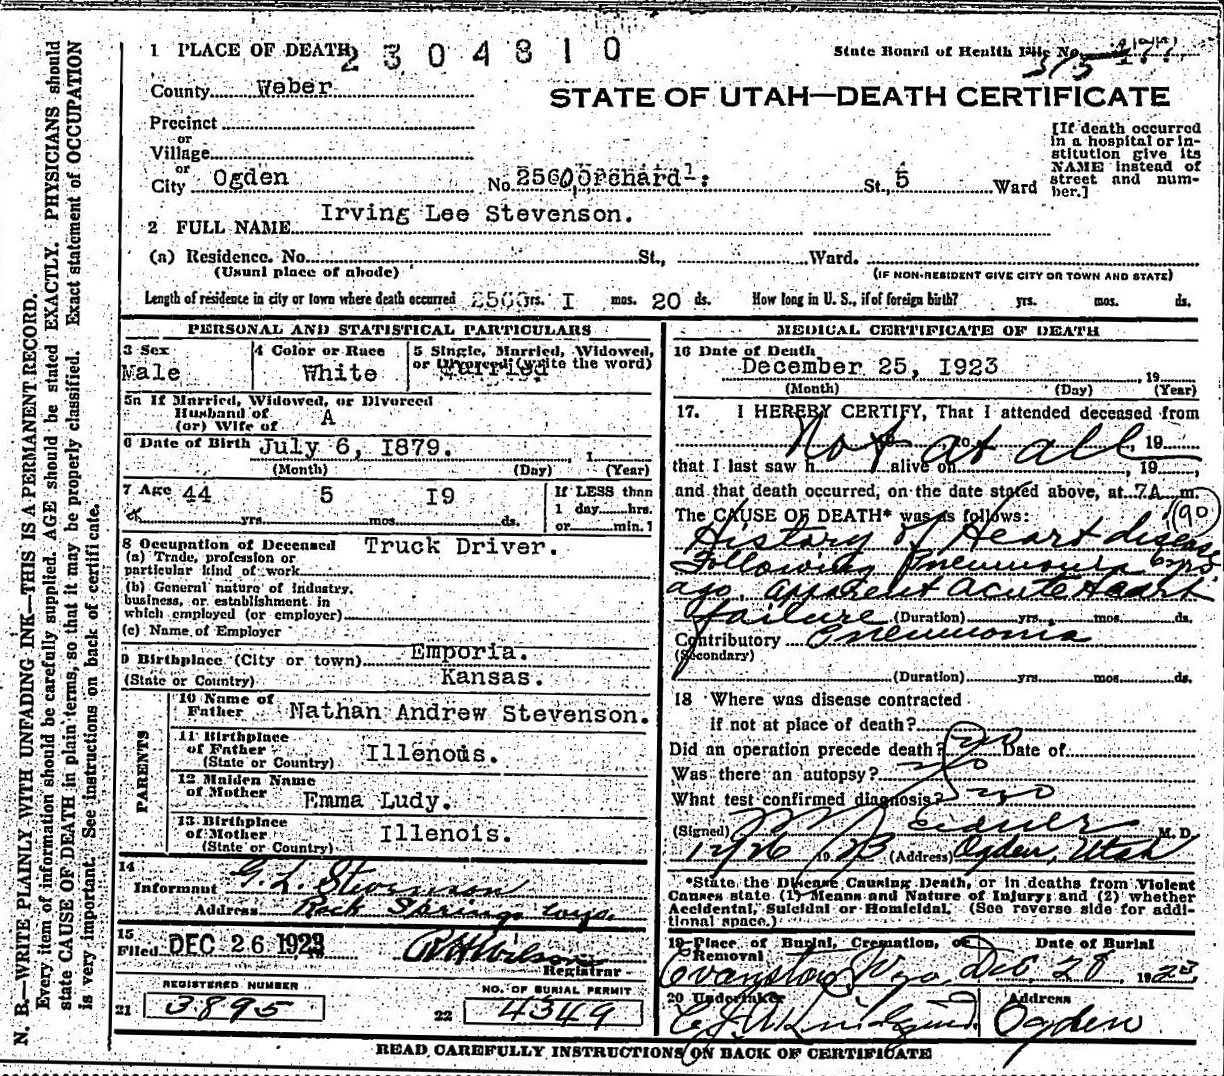 N. B.—WRITE PLAINLY WITH UNFADING INK—THIS IS A PERMANENT RECORD.
Every item of information should be carefully supplied. AGE should be stated EXACTLY. PHYSICIANS should
state CAUSE OF DEATH in plain terms, so that it may be properly classified. Exact statement of OCCUPATION
is very important. See instructions on back of certificate.
1 PLACE OF DEATH
2304810
State Board of Health File No.
County Weber
STATE OF UTAH—DEATH CERTIFICATE
Precinct
or
Village
or
City Ogden No. 2560 Orchard St., 5 Ward
[If death occurred
in a hospital or in-
stitution give its
NAME instead of
street and num-
ber.]
2 FULL NAME Irving Lee Stevenson.
(a) Residence. No. St., Ward.
(Usual place of abode) (IF NON-RESIDENT GIVE CITY OR TOWN AND STATE)
Length of residence in city or town where death occurred yrs. I mos. 20 ds. How long in U. S., if of foreign birth? yrs. mos. ds.
PERSONAL AND STATISTICAL PARTICULARS
3 Sex
Male
4 Color or Race
White
5 Single, Married, Widowed,
or Divorced (write the word)
Married
5a If Married, Widowed, or Divorced
Husband of
(or) Wife of A
6 Date of Birth July 6, I879. , 1
(Month) (Day) (Year)
7 Age 44 5 I9
yrs. mos. ds.
If LESS than
1 day hrs.
or min.?
8 Occupation of Deceased Truck Driver.
(a) Trade, profession or
particular kind of work
(b) General nature of industry,
business, or establishment in
which employed (or employer)
(c) Name of Employer
9 Birthplace (City or town) Emporia.
(State or Country) Kansas.
PARENTS
10 Name of
Father Nathan Andrew Stevenson.
11 Birthplace
of Father Illenous.
(State or Country)
12 Maiden Name
of Mother Emma Ludy.
13 Birthplace
of Mother Illenois.
(State or Country)
14
Informant G. L. Stevenson
Address Rock Springs Wyo.
15
Filed DEC 26 1923 R H Wilson
Registrar
REGISTERED NUMBER
21 3895
NO. OF BURIAL PERMIT
22 4349
MEDICAL CERTIFICATE OF DEATH
16 Date of Death
December 25, I923 , 19
(Month) (Day) (Year)
17. I HEREBY CERTIFY, That I attended deceased from
Not at all 19
that I last saw h alive on , 19 ,
and that death occurred, on the date stated above, at 7A m.
The CAUSE OF DEATH* was as follows: 90
History of Heart disease
Following Pneumonia 6 yrs
ago apparent acute Heart
failure (Duration) yrs. mos. ds.
Contributory Pneumonia
(Secondary)
(Duration) yrs. mos. ds.
18 Where was disease contracted
if not at place of death?
Did an operation precede death? no Date of
Was there an autopsy? no
What test confirmed diagnosis? no
(Signed) M. D.
12/26 1923 (Address) Ogden, Utah
*State the Disease Causing Death, or in deaths from Violent
Causes state (1) Means and Nature of Injury; and (2) whether
Accidental, Suicidal or Homicidal. (See reverse side for addi-
tional space.)
19 Place of Burial, Cremation, or
Removal
Date of Burial
Evanston Wyo. Dec 28 1923
20 Undertaker
Address
Ogden
READ CAREFULLY INSTRUCTIONS ON BACK OF CERTIFICATE